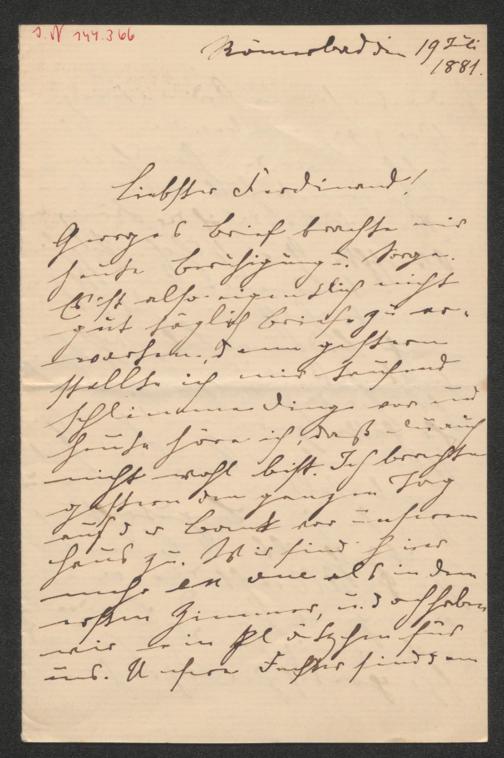 J. N 144.366
Römerbad den 19 Juli
1881.
Liebster Ferdinand!
Georges Brief brachte mir
heute Beruhigung u. Sorge.
Es ist also eigentlich nicht
gut täglich Briefe zu er-
warten, denn gestern
stellte ich mir tausend
schlimme Dinge vor und
heute höre ich, daß du auch
nicht wohl bist. Ich brachte
gestern den ganzen Tag
auf der Bank vor unserem
Haus zu. Wir sind hier
mehr en vue als in dem
ersten Zimmer, u. doch haben
wir ein Plätzchen für
uns. Unsere Fenster sind